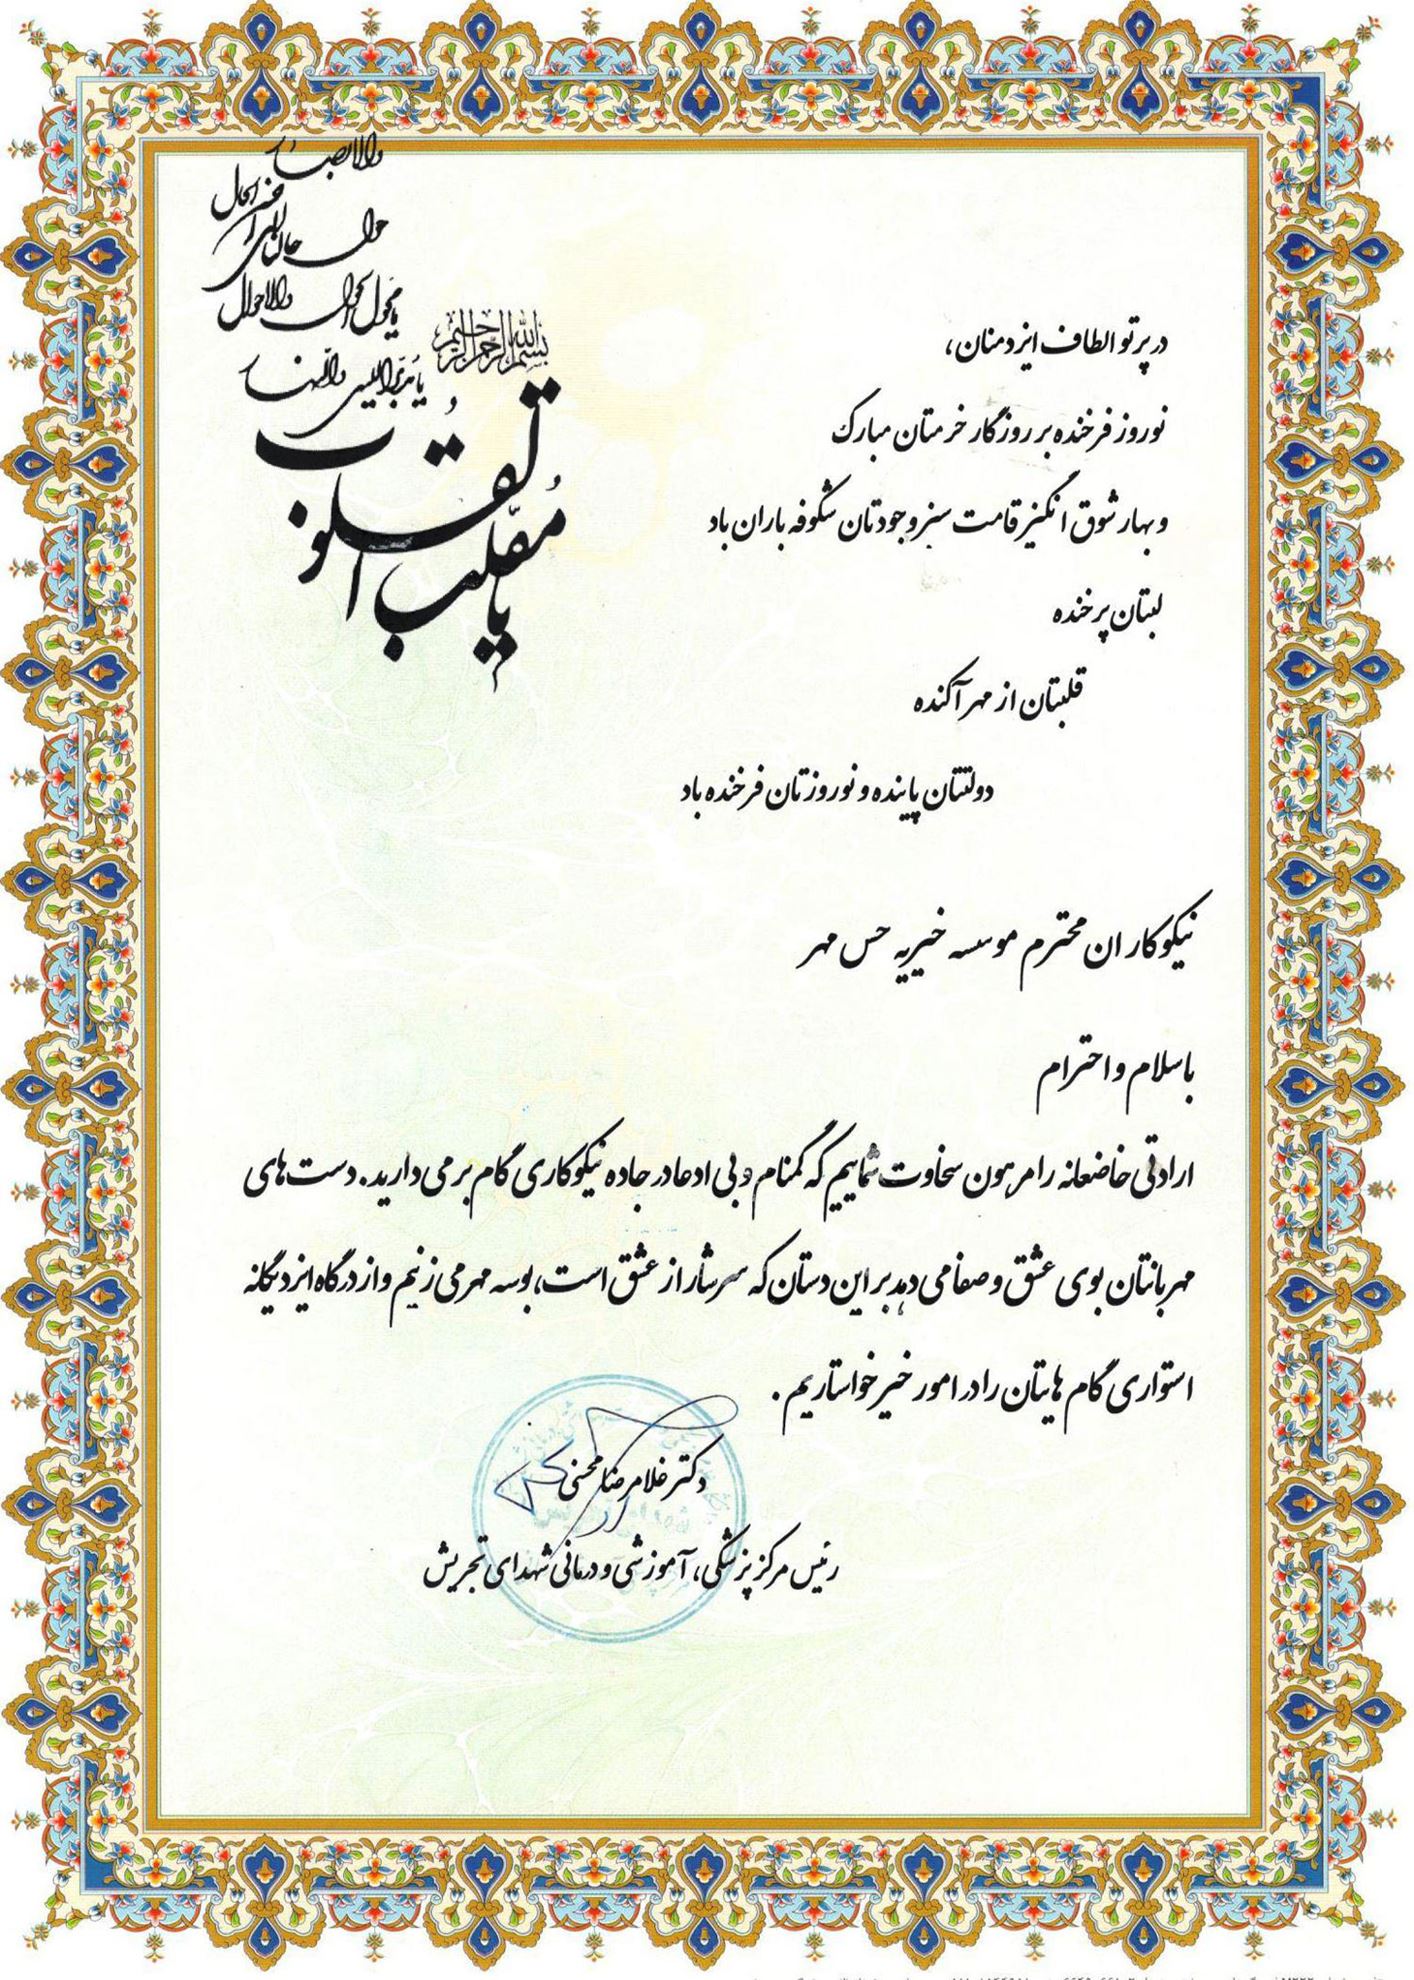 والابصار
حول حالنا الی احسن الحال
یا محول الحول والاحوال
یا مدبر اللیل والنهار
بسم الله الرحمن الرحیم
یا مقلب القلوب
در پرتو الطاف ایزد منان،
نوروز فرخنده بر روزگار خرمتان مبارک
و بهار شوق انگیز قامت سبز وجودتان شکوفه باران باد
لبتان پر خنده
قلبتان از مهر آکنده
دولتتان پاینده و نوروزتان فرخنده باد
نیکوکاران محترم موسسه خیریه حس مهر
با سلام و احترام
ارادتی خاضعانه را مرهون سخاوت شماییم که گمنام و بی ادعا در جاده نیکوکاری گام برمی دارید. دست های
مهربانتان بوی عشق و صفا می دهد بر این دستان که سرشار از عشق است، بوسه مهر می زنیم و از درگاه ایزد یگانه
استواری گام هایتان را در امور خیر خواستاریم.
دکتر غلامرضا محسنی
رئیس مرکز پزشکی، آموزشی و درمانی شهدای تجریش